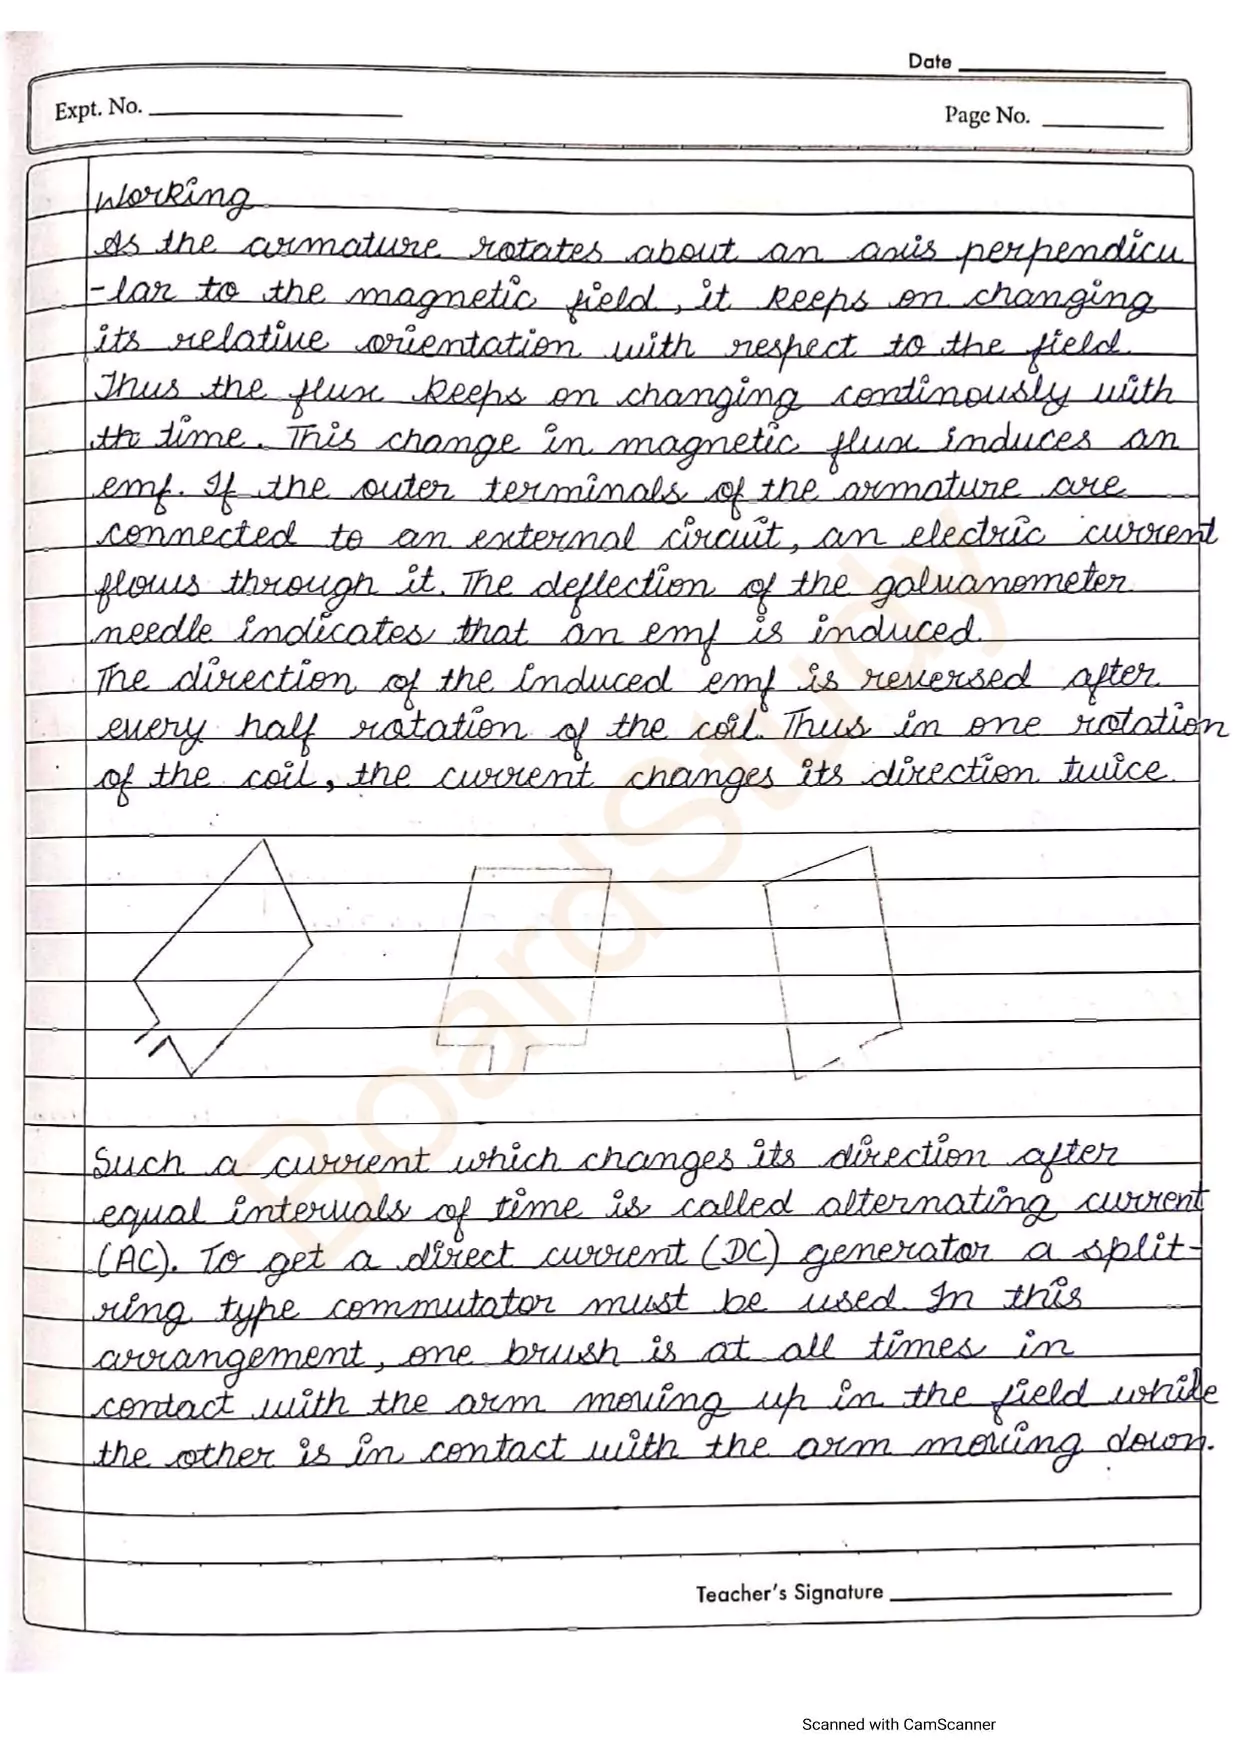 Date
Expt. No.
Page No.
Working
As the armature rotates about an axis perpendicu
-lar to the magnetic field, it keeps on changing
its relative orientation with respect to the field.
Thus the flux keeps on changing continously with
th time. This change in magnetic flux induces an
emf. If the outer terminals of the armature are
connected to an external circuit, an electric current
flows through it. The deflection of the galvanometer
needle indicates that an emf is induced.
The direction of the induced emf is reversed after
every half rotation of the coil. Thus in one rotation
of the coil, the current changes its direction twice.
BoardStudy
Such a current which changes its direction after
equal intervals of time is called alternating current
(AC). To get a direct current (DC) generator a split-
ring type commutator must be used. In this
arrangement, one brush is at all times in
contact with the arm moving up in the field while
the other is in contact with the arm moving down.
Teacher's Signature
Scanned with CamScanner